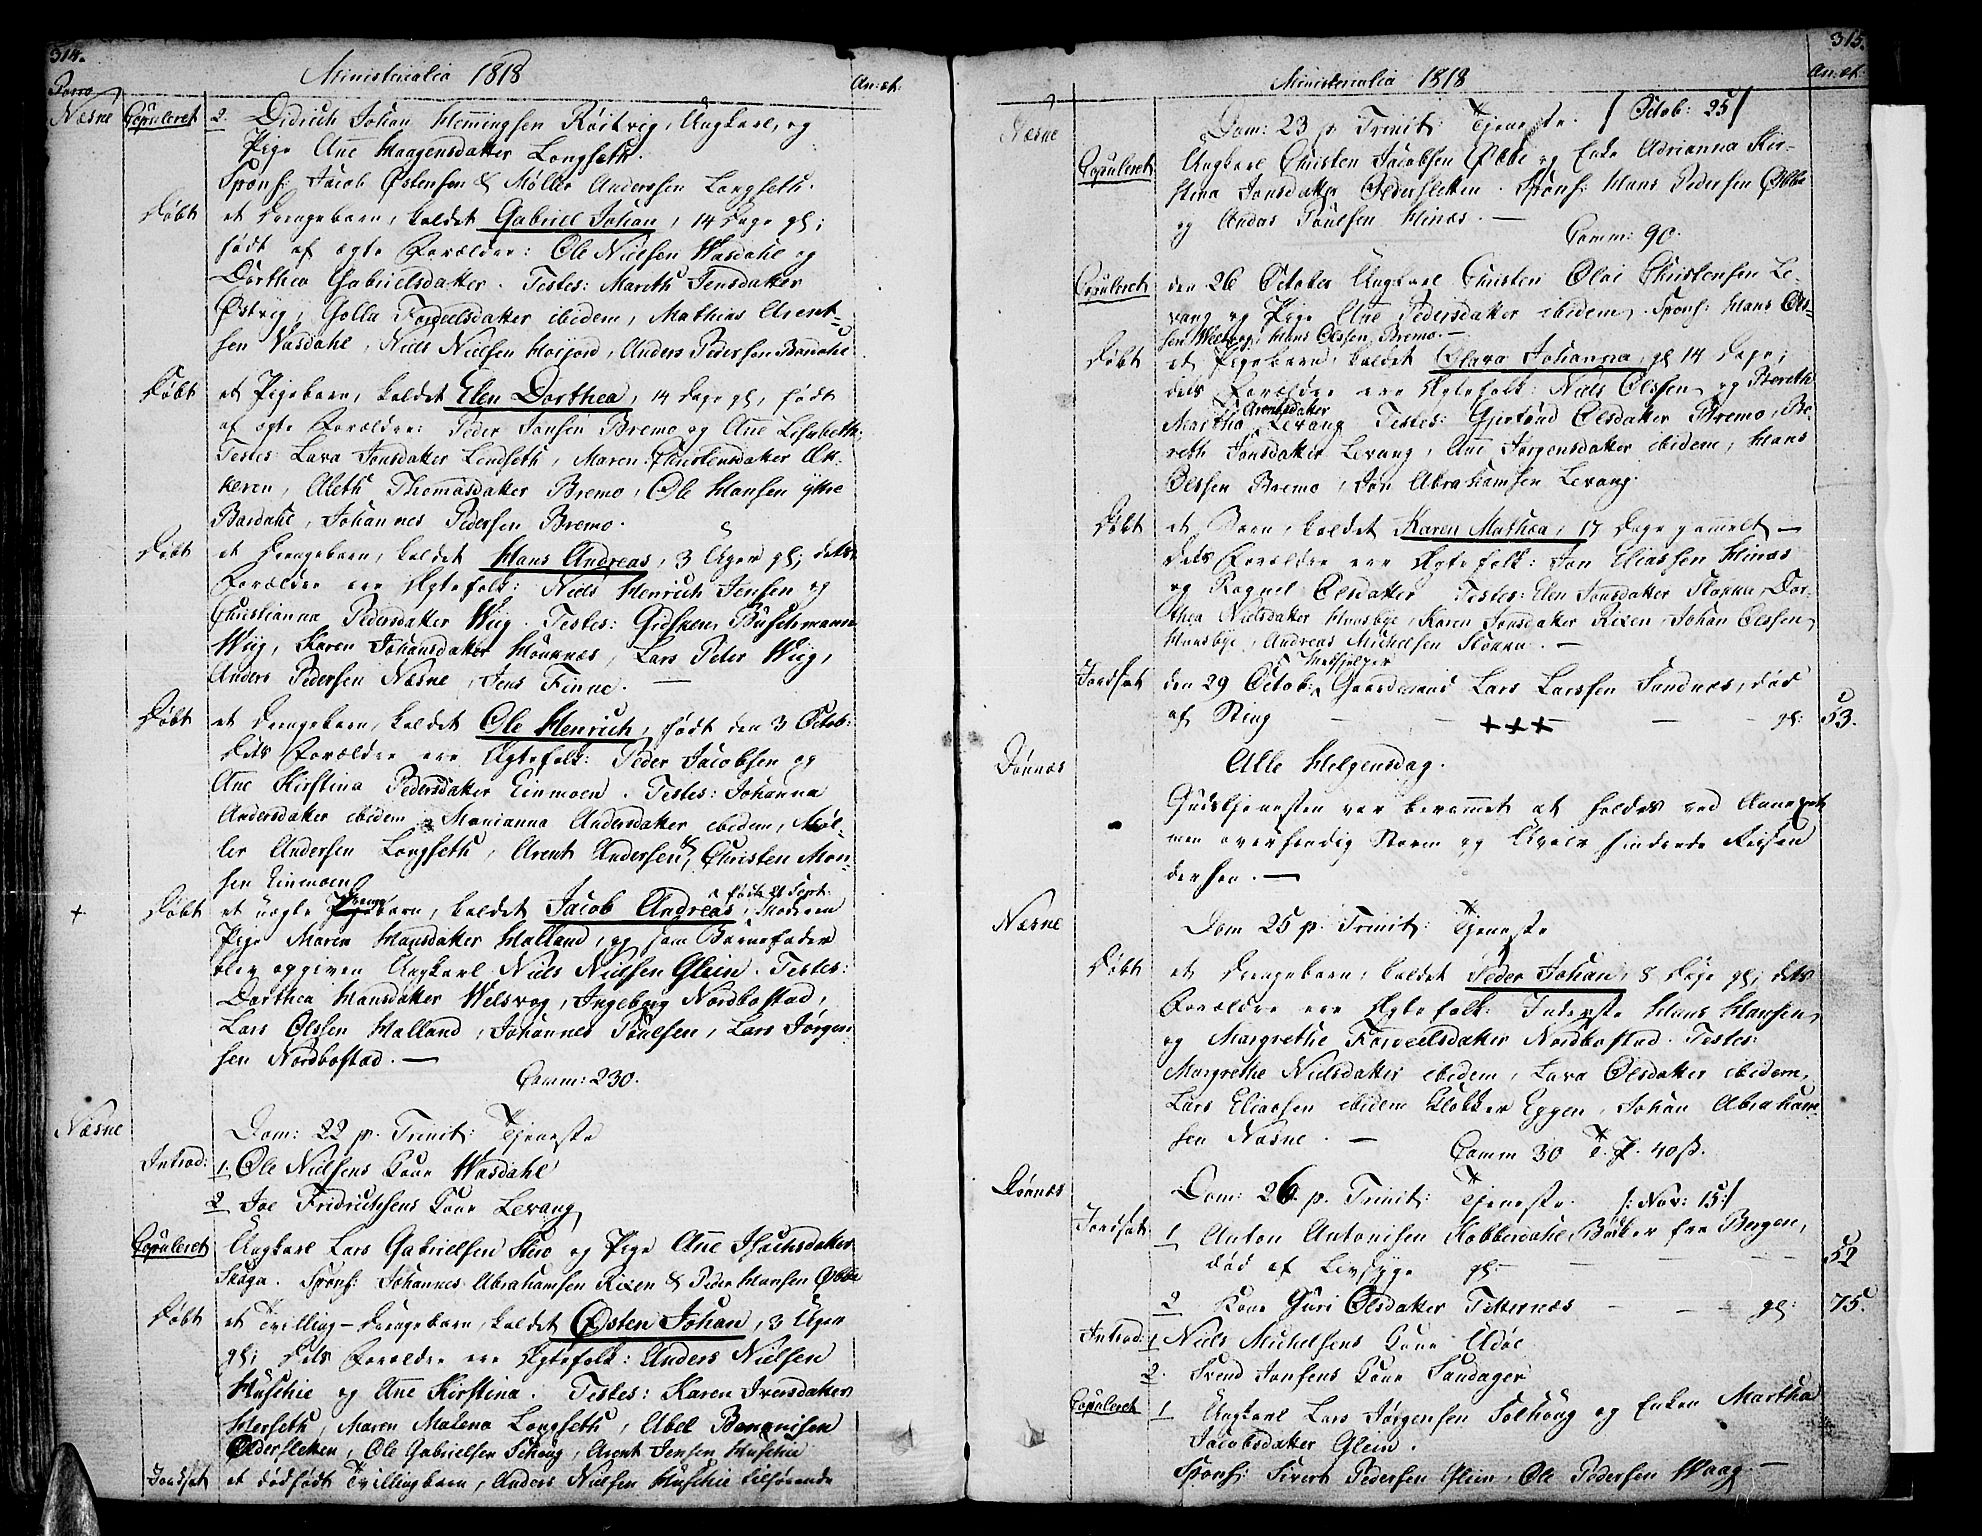 314.
Porro
Ministerialia 1818
An: æt:
Næsne Copuleret 2. Didrich Johan Hemmingsen Röitvig, Ungkarl, og
Pige Ane Haagensdatter Longseth.
Spons: Jacob Østensen & Møller Andersen Longseth.
Døbt et Drengebarn, kaldet Gabriel Johan, 14 Dage gl;
født af ægte Forældre: Ole Nielsen Wasdahl og
Dorthea Gabrielsdatter. Testes: Mareth Jensdatter
Østvig, Golla ibidem, Mathias Arent-
sen Vasdahl, Niels Nielsen Anders Pedersen Bardahl
Døbt et Pigebarn, kaldet Elen Dorthea, 14 Dage gl, født
af ægte Forældre: Peder Jonsen Bremo og Ane Lisabeth
Testes: Lava Jonsdatter Lendseth, Maren Christensdatter Ak-
keren, Aleth Thomasdatter Bremo, Ole Hansen ytre
Bardahl, Johannes Pedersen Bremo.
Døbt et Drengebarn, kaldet Hans Andreas, 3 Uger gl; dets
Forældre ere Ægtefolk: Niels Henrich Jensen og
Christianna Pedersdatter Wiig. Testes: Gidsken Buschmann
Wiig, Karen Johansdatter Lars Peter Wiig,
Anders Pedersen Næsne, Jens Finne. —
Døbt et Drengebarn, kaldet Ole Henrich, født den 3 Octob:
Dets Forældre ere Ægtefolk: Peder Jacobsen og
Ane Kirstina Pedersdatter Einmoen. Testes: Johanna
Andersdatter ibidem, Marianna Andersdatter ibidem, Møl-
ler Andersen Longseth, Arent Andersen & Christen Mon-
sen Einmoen
+ Døbt et uægte Drengebarn, kaldet Jacob Andreas, født 21 Sept. Moderen
Pige Maren Hansdatter Halland, og som Barnefader
blev opgiven Ungkarl Niels Nielsen Glein. Testes:
Dorthea Hansdatter Welsvog, Ingeborg Nordbostad,
Lars Olssen Halland, Johannes Poulsen, Lars Jørgen-
sen Nordbostad. —
Comm: 230.
Næsne Dom: 22 p. Trinit: Tjeneste
Introd: 1. Ole Nielsens Kone Wasdahl
2 Joe Fridrichsens Kone Levang
Copuleret Ungkarl Lars Gabrielsen og Pige Ane Isachsdatter
Skoga. Spons: Johannes Abrahamsen Rixen & Peder Hansen Øbbe
Døbt et Tvilling-Drengebarn, kaldet Østen Johan, 3 Uger
gl; Dets Forældre ere Ægtefolk: Anders Nielsen
Huschie og Ane Kirstina. Testes: Karen Iversdatter
Herseth, Maren Malena Longseth, Abel Benonisen
Oldersletten, Ole Gabrielsen Arent Jensen Huschie
Jordfæt et dødfødt Tvillingbarn, Anders Nielsen Huschie tilhørende
315.
Ministerialia 1818
An: æt:
Næsne Dom: 23 p. Trinit: Tjeneste. /: Octob: 25 :/
Copuleret Ungkarl Christen Jacobsen Øbbe og Enke Adrianna Kir-
stina Jonsdatter Oldersletten. Spons: Hans Pedersen Øbbe
og Andas Poulsen Hinæs. —
Comm: 90.
Copuleret den 26 October Ungkarl Christen Olai Christensen Le-
vang og Pige Ane Pedersdatter ibidem. Spons: Hans Ols-
sen Hans Olssen, Bremo. —
Døbt et Pigebarn, kaldet Olava Johanna, gl 14 Dage;
dets Forældre ere Ægtefolk: Niels Olssen og Bereth
Martha Arentsdatter Levang Testes: Gjertrud Olsdatter Bremo, Be-
reth Jonsdatter Levang, Ane Jørgensdatter ibidem, Hans
Olssen Bremo, Jon Abrahamsen Levang.
Døbt et Barn, kaldet Karen Mathea, 17 Dage gammelt —
dets Forældre ere Ægtefolk: Jon Eliassen Hinæs
og Ragnel Olsdatter Testes: Elen Jonsdatter Stokka, Dor-
thea Nielsdatter Huusbye, Karen Jonsdatter Rixen, Johan Olssen
Huusbye, Andreas Michelsen Stokka. —
Jordfæt den 29 Octob: Medhjelper Gaardmand Lars Larssen Sandnæs, død
af Sting — — +++ — — gl: 53.
Dønnæs Alle Helgensdag.
Gudstjenesten var berammet at holdes ved Annexet
men overhændig Storm og Uveir hindrede Reisen
derhen. —
Næsne Dom 25 p. Trinit: Tjeneste
Døbt et Drengebarn, kaldet Peder Johan, 8 Dage gl; dets
Forældre ere Ægtefolk: Inderste Hans Hansen
og Margrethe Nordbostad. Testes:
Margrethe Nielsdatter ibidem, Lava Olsdatter ibidem,
Lars Eliassen ibidem Klokker Eggen, Johan Abraham-
sen Næsne. —
Comm 30 T. P. 40ß.
Dønnæs Dom: 26. p. Trinit: Tjeneste. /: Nov: 15 :/
Jordfæt: 1 Anton Antonisen Kobberdahl Böcker fra Bergen,
død af gl — — — 52
2 Kone Guri Olsdatter Titternæs — — — gl: 75.
Introd: 1 Niels Michelsens Kone
2. Svend Jonsens Kone Sandager
Copuleret 1 Ungkarl Lars Jørgensen Solhoug og Enken Martha
Jacobsdatter Glein.
Spons: Sivert Pedersen Glein, Ole Pedersen Waag. —